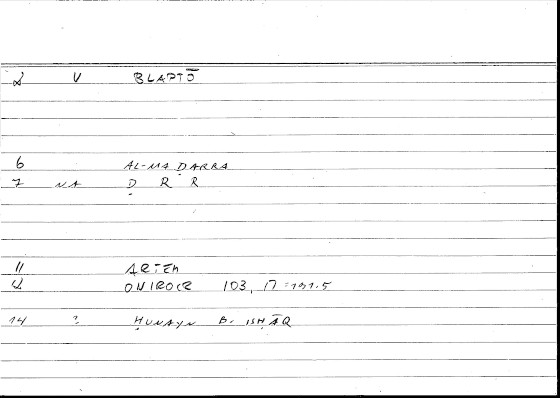 2 V BLAPTŌ
6 AL-MAḌARRA
7 NA Ḍ R R
11 ARTEM
12 ONIROCR 103, 17 = 191.5
14 ? ḤUNAYN B. ISḤĀQ